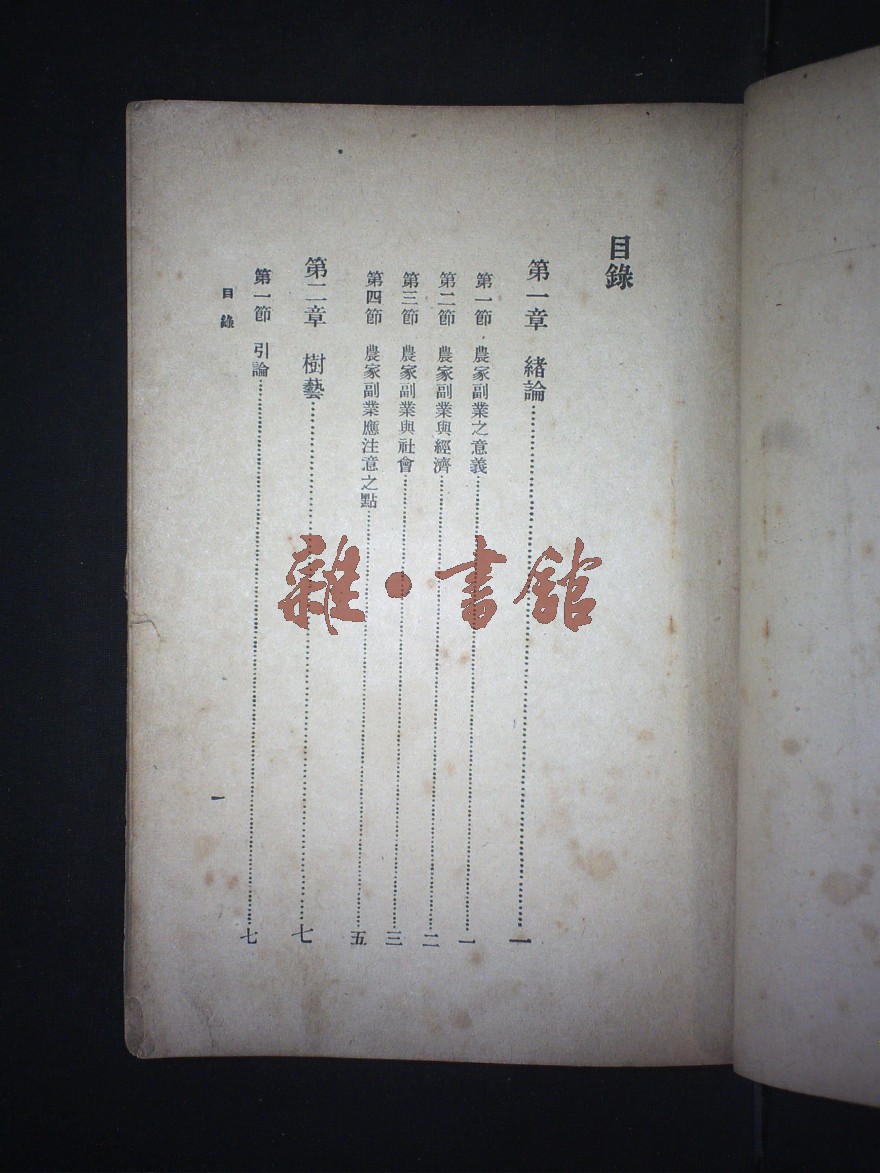 目錄
第一章 緒論……一
第一節 農家副業之意義……一
第二節 農家副業與經濟……二
第三節 農家副業與社會……三
第四節 農家副業應注意之點……五
第二章 樹藝……七
第一節 引論……七
目錄 一
雜·書館